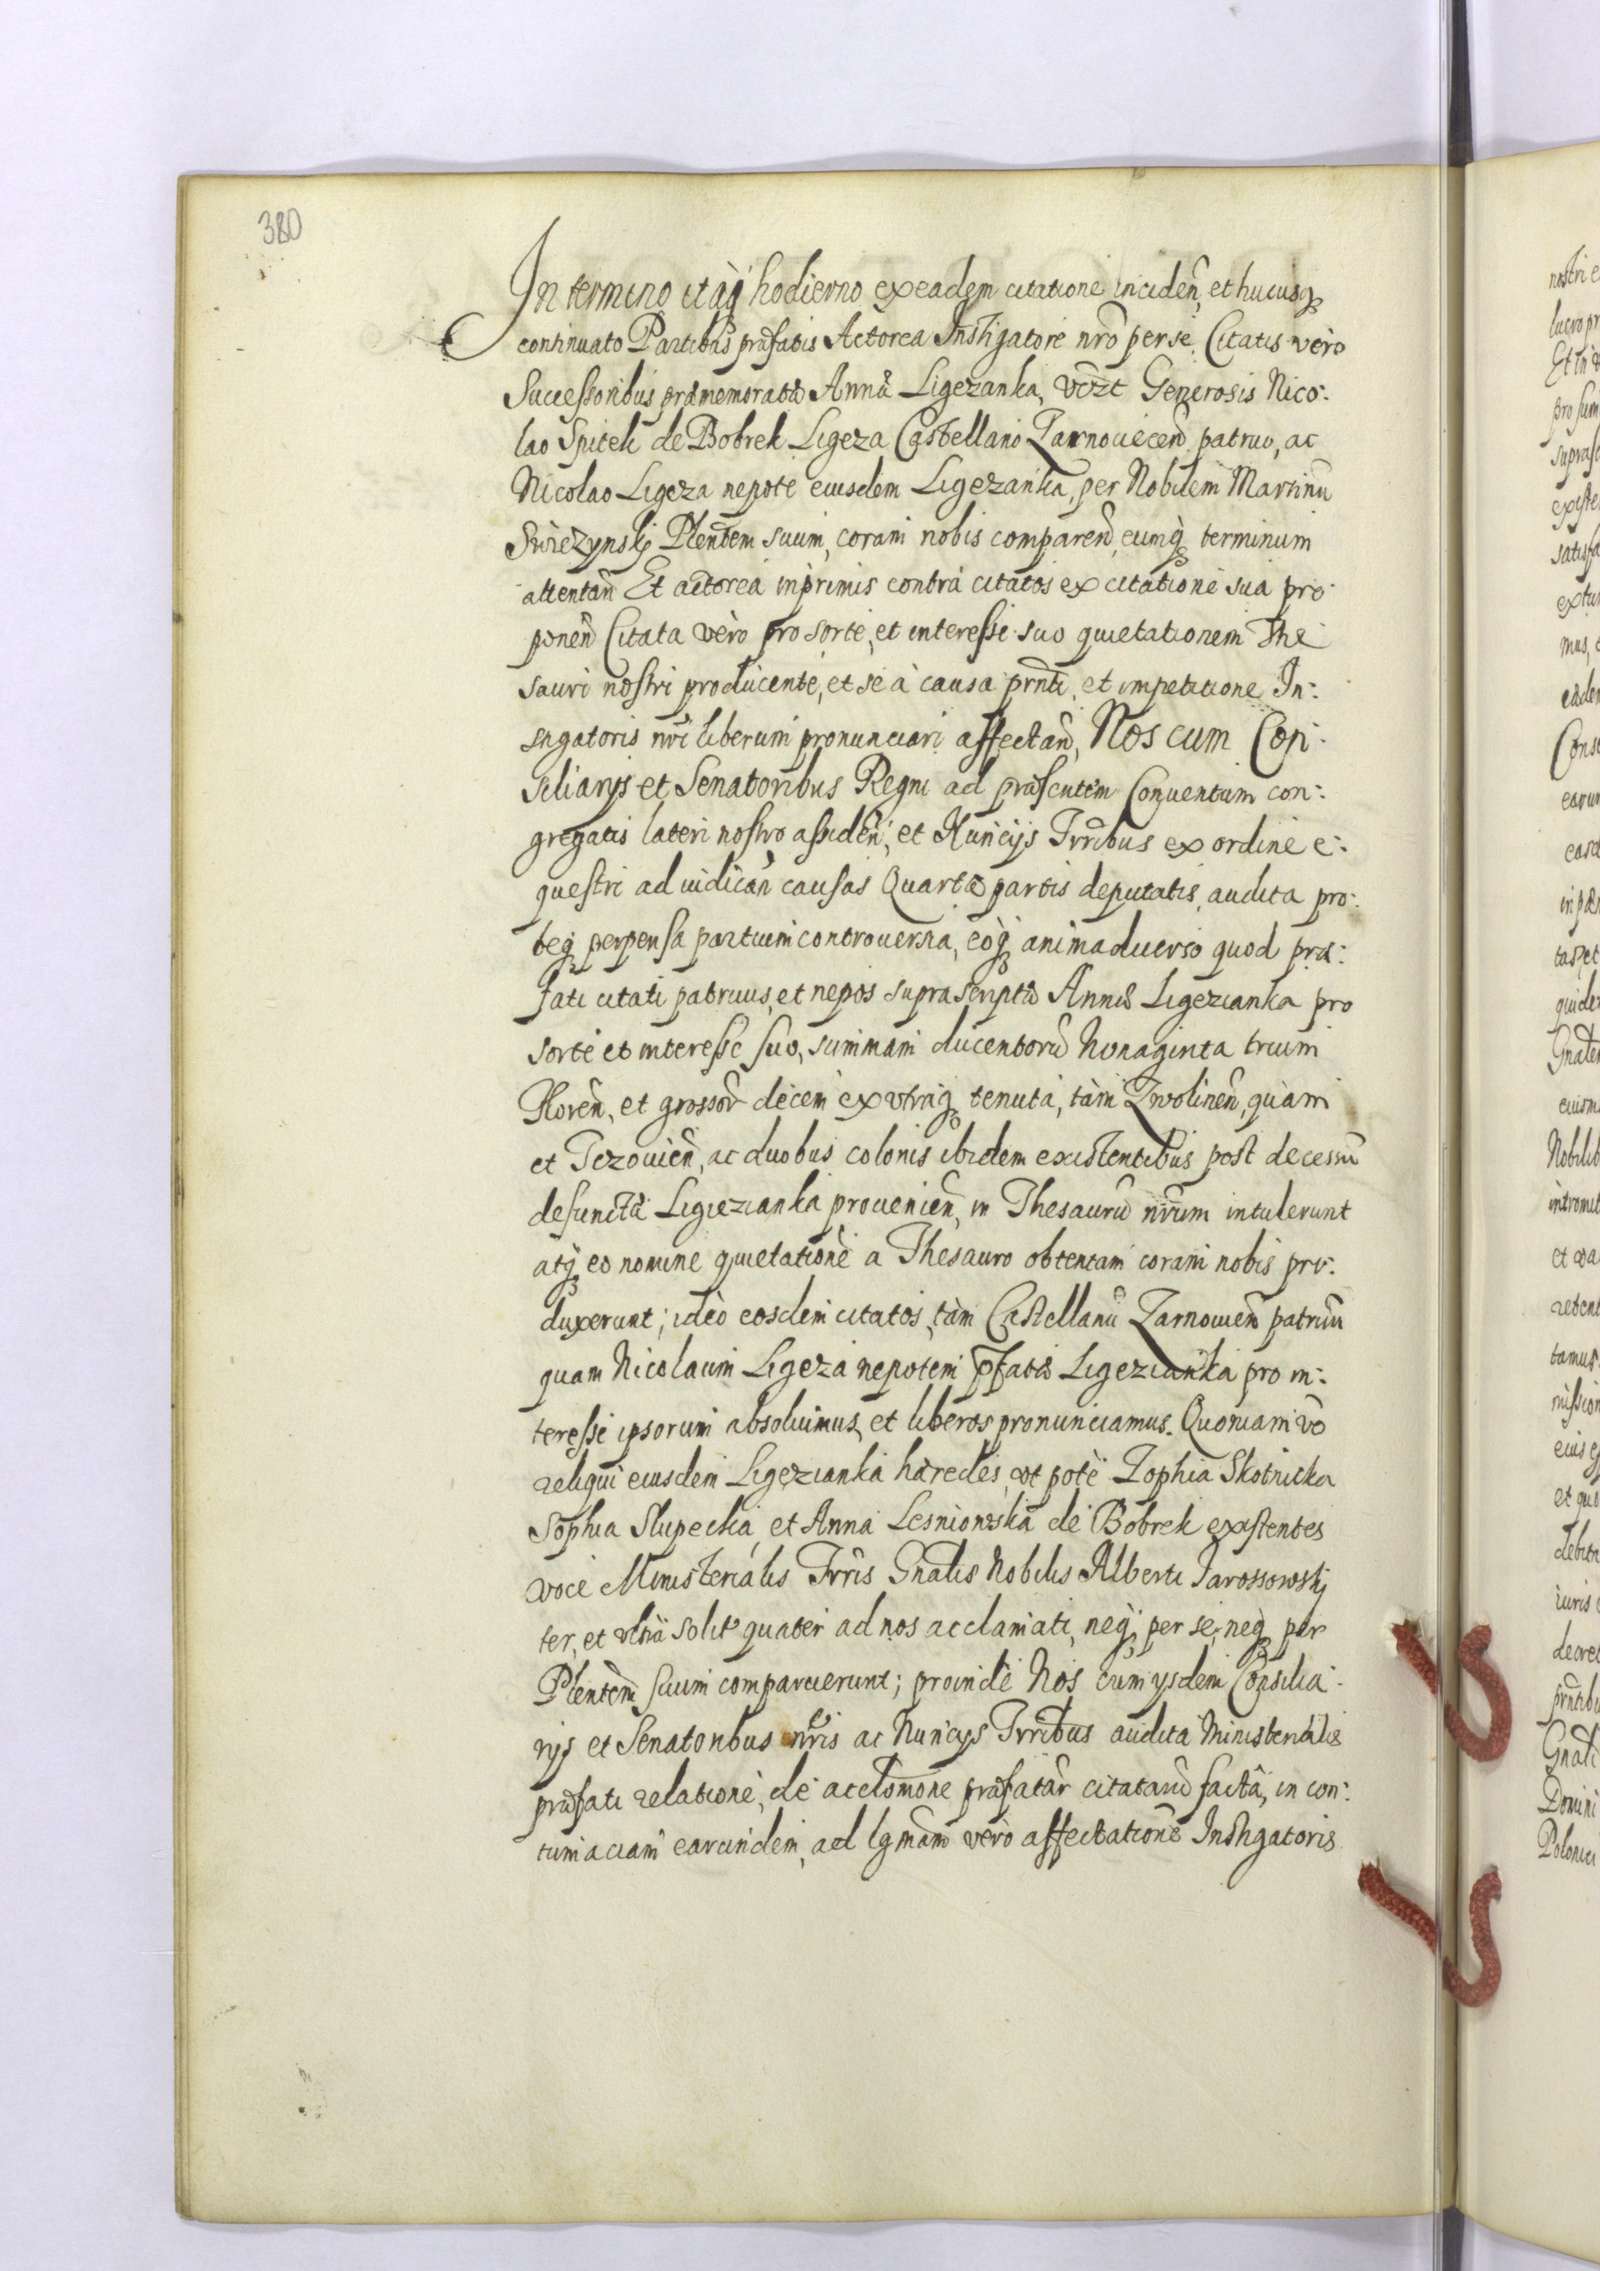 380
In termino itaq hodierno ex eadem citatione inciden, et hucusq
continuato Partibus præfatis Actorea Instigatore nro per se, Citatis vero
Successoribus præmemoratæ Annæ Ligezanka, vdzt Generosis Nico:
lao Spitek de Bobrek Ligeza Castellano Zarnovecen patruo, ac
Nicolao Ligeza nepote eiusdem Ligezanka, per Nobilem Martinu
Swiezynskj Plentem suum, coram nobis comparen, eumq terminum
attentan Et actorea inprimis contra citatos ex citatione sua pro
ponen Citata vero pro sorte, et interesse suo quietationem The
sauri nostri producente, et se à causa prnti, et impetitione In:
stigatoris nri liberum pronunciari affectan, Nos cum Con
siliarijs et Senatoribus Regni ad præsentem Conventum con:
gregatis lateri nostro assiden, et Nuncijs Trribus ex ordine e:
questri ad iudican causas Quartæ partis deputatis, audita pro:
beq perpensa partium controversia, eoq animadverso quod præ:
fati citati patruus, et nepos suprascriptæ Annæ Ligezianka pro
sorte et interesse suo, summam ducentoru Nonaginta trium
Floren, et grossor decem ex vtraq tenuta, tàm Zwolinen, quàm
et Jezovien, ac duobus colonis ibidem existentibus post decessu
defunctæ Ligiezianka provenien, in Thesauru nrum intulerunt
atq eo nomine quietatione a Thesauro obtentam coram nobis pro:
duxerunt; ideo eosdem citatos, tàm Castellanu Zarnovien patruu
quam Nicolaum Ligeza nepotem pfatæ Ligezianka pro in:
teresse ipsorum absolvimus, et liberos pronunciamus. Quoniam vo
reliqui eiusdem Ligezianka hæredes, vt pote Zophia Skotnicka
Sophia Slupecka, et Anna Lesniowska de Bobrek existentes
voce Ministerialis Trris Gnalis Nobilis Alberti Jarossowskj
ter, et vltra solit quater ad nos acclamati, neq per se, neq per
Plentem suum comparuerunt; proinde Nos cum ysdem Consilia
rijs et Senatoribus nris ac Nuncijs Trribus audita Ministerialis
præfati relatione, de acclamone præfatar citataru facta, in con:
tumaciam earundem, ad lgmam vero affectatione Instigatoris